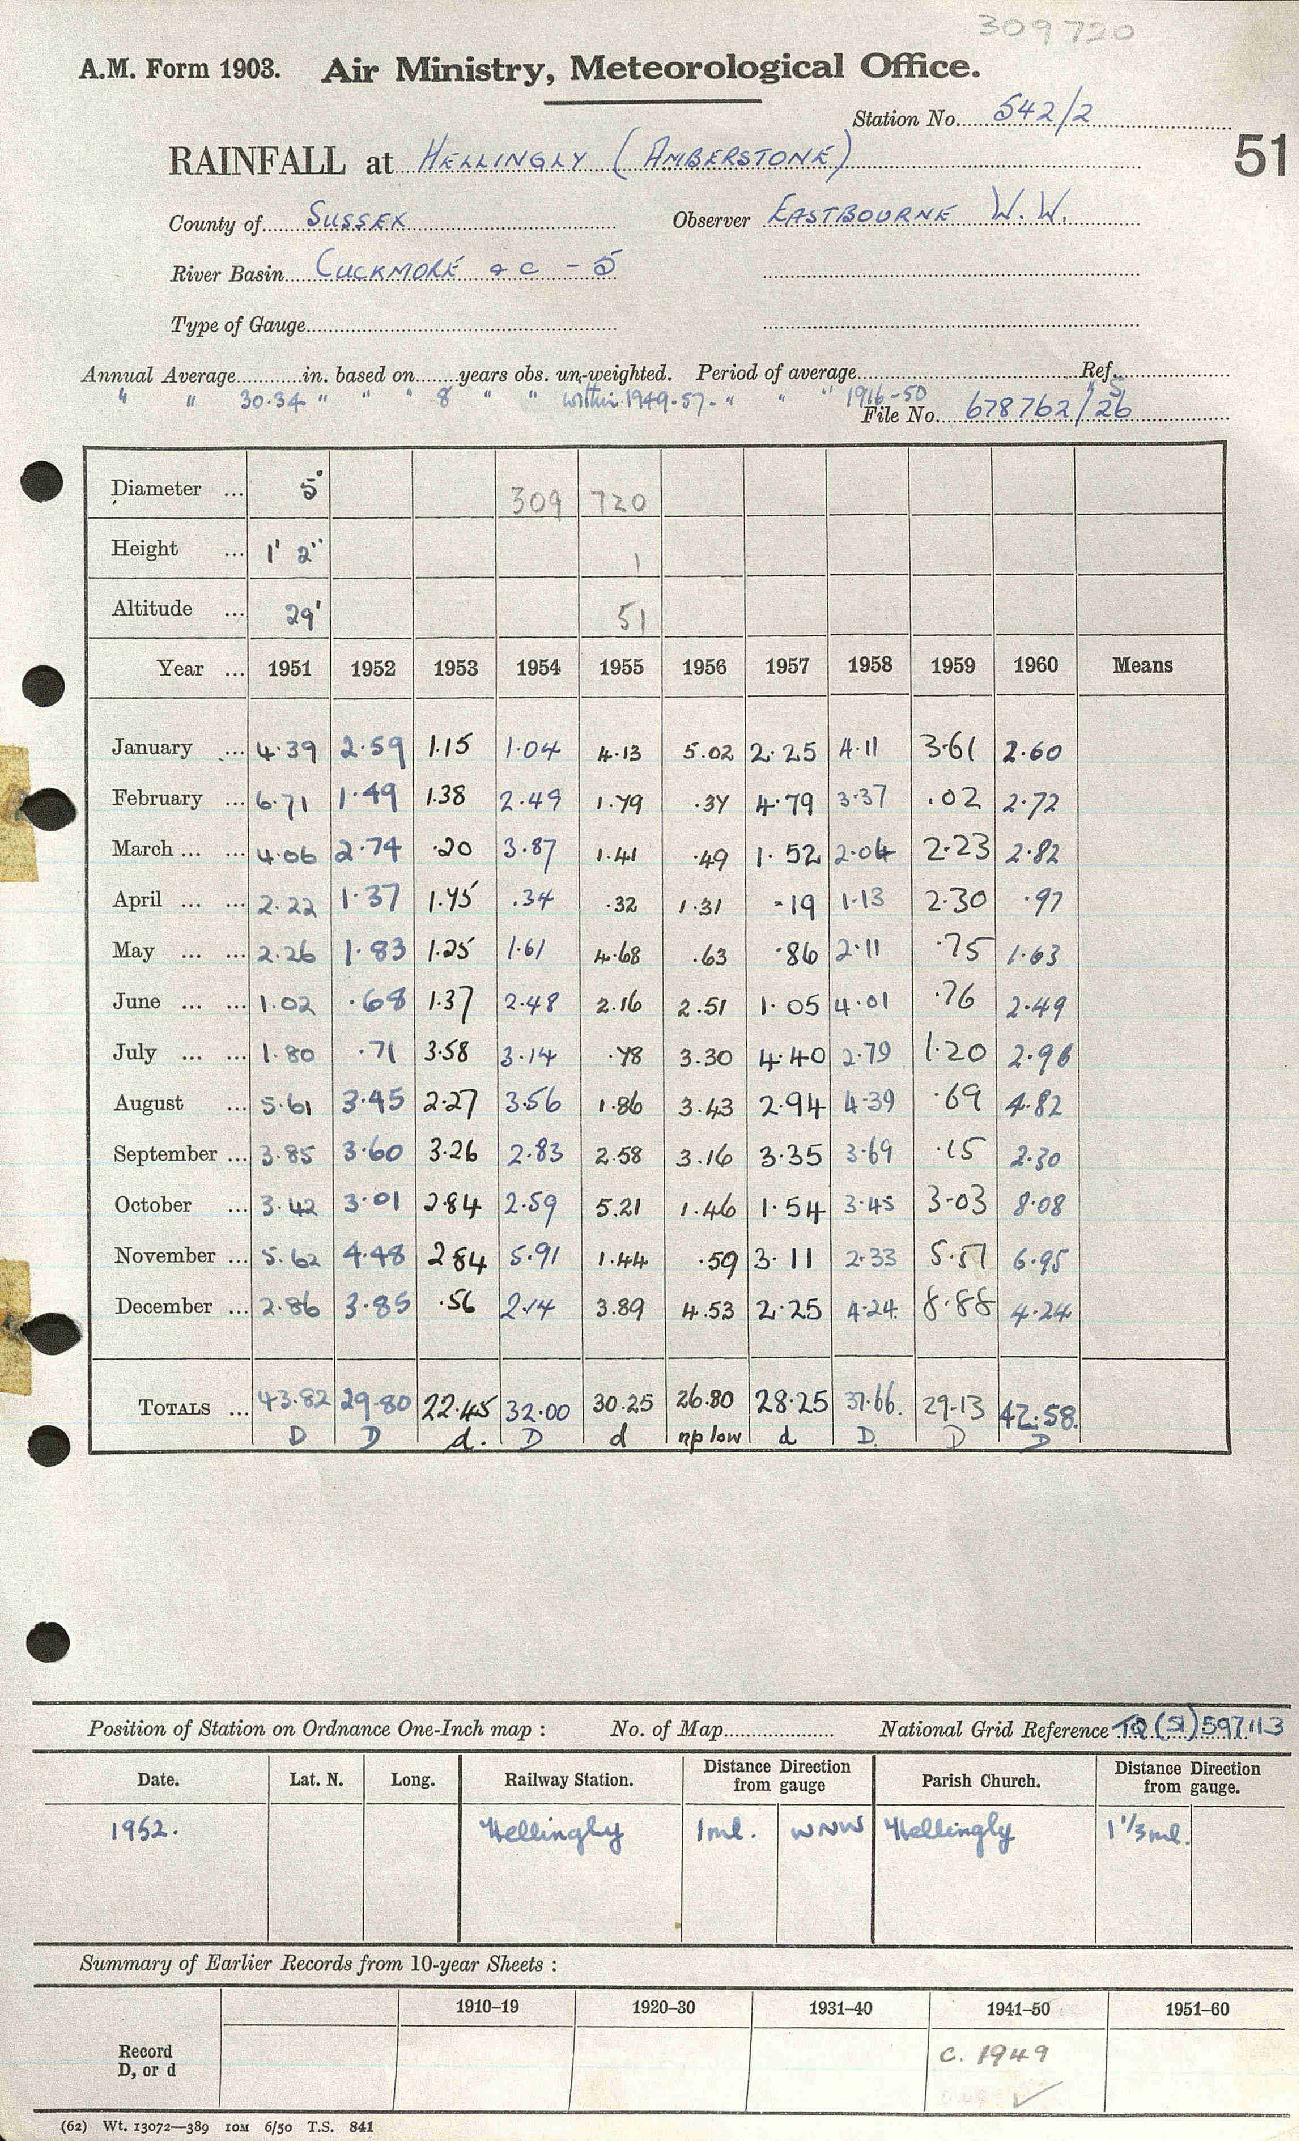 309720
A.M. Form 1903. Air Ministry, Meteorological Office.
Station No. 542/2
RAINFALL at HELLINGLY (AMBERSTONE)
51
County of SUSSEX Observer EASTBOURNE W.W.
River Basin CUCKMORE &c - 5
Type of Gauge
Annual Average in. based on years obs. un-weighted. Period of average Ref.
" " 30.34 " " " 8 " " within 1949-57 - " " " 1916-50 " S
File No. 678762/26
Diameter ... 5" 309 720
Height ... 1' 2" 1
Altitude ... 29' 51
Year ... 1951 1952 1953 1954 1955 1956 1957 1958 1959 1960 Means
January ... 4.39 2.59 1.15 1.04 4.13 5.02 2.25 4.11 3.61 2.60
February ... 6.71 1.49 1.38 2.49 1.79 .37 4.79 3.37 .02 2.72
March ... ... 4.06 2.74 .20 3.87 1.41 .49 1.52 2.04 2.23 2.82
April ... ... 2.22 1.37 1.75 .34 .32 1.31 .19 1.13 2.30 .97
May ... ... 2.26 1.83 1.25 1.61 4.68 .63 .86 2.11 .75 1.63
June ... ... 1.02 .68 1.37 2.48 2.16 2.51 1.05 4.01 .76 2.49
July ... ... 1.80 .71 3.58 3.14 .78 3.30 4.40 2.79 1.20 2.96
August ... 5.61 3.45 2.27 3.56 1.86 3.43 2.94 4.39 .69 4.82
September ... 3.85 3.60 3.26 2.83 2.58 3.16 3.35 3.69 .15 2.30
October ... 3.42 3.01 2.84 2.59 5.21 1.46 1.54 3.45 3.03 8.08
November ... 5.62 4.48 2.84 5.91 1.44 .59 3.11 2.33 5.51 6.95
December ... 2.86 3.85 .56 2.14 3.89 4.53 2.25 4.24 8.88 4.24
TOTALS ... 43.82 29.80 22.45 32.00 30.25 26.80 28.25 37.66. 29.13 42.58.
D D d. D d np low d D. D D
Position of Station on Ordnance One-Inch map : No. of Map National Grid Reference TQ (51) 597113
Date. Lat. N. Long. Railway Station. Distance Direction from gauge Parish Church. Distance Direction from gauge.
1952. Hellingly 1 ml. WNW Hellingly 1 1/3 ml.
Summary of Earlier Records from 10-year Sheets :
1910–19 1920–30 1931–40 1941–50 1951–60
Record D, or d c. 1949
(62) Wt. 13072—389 10M 6/50 T.S. 841